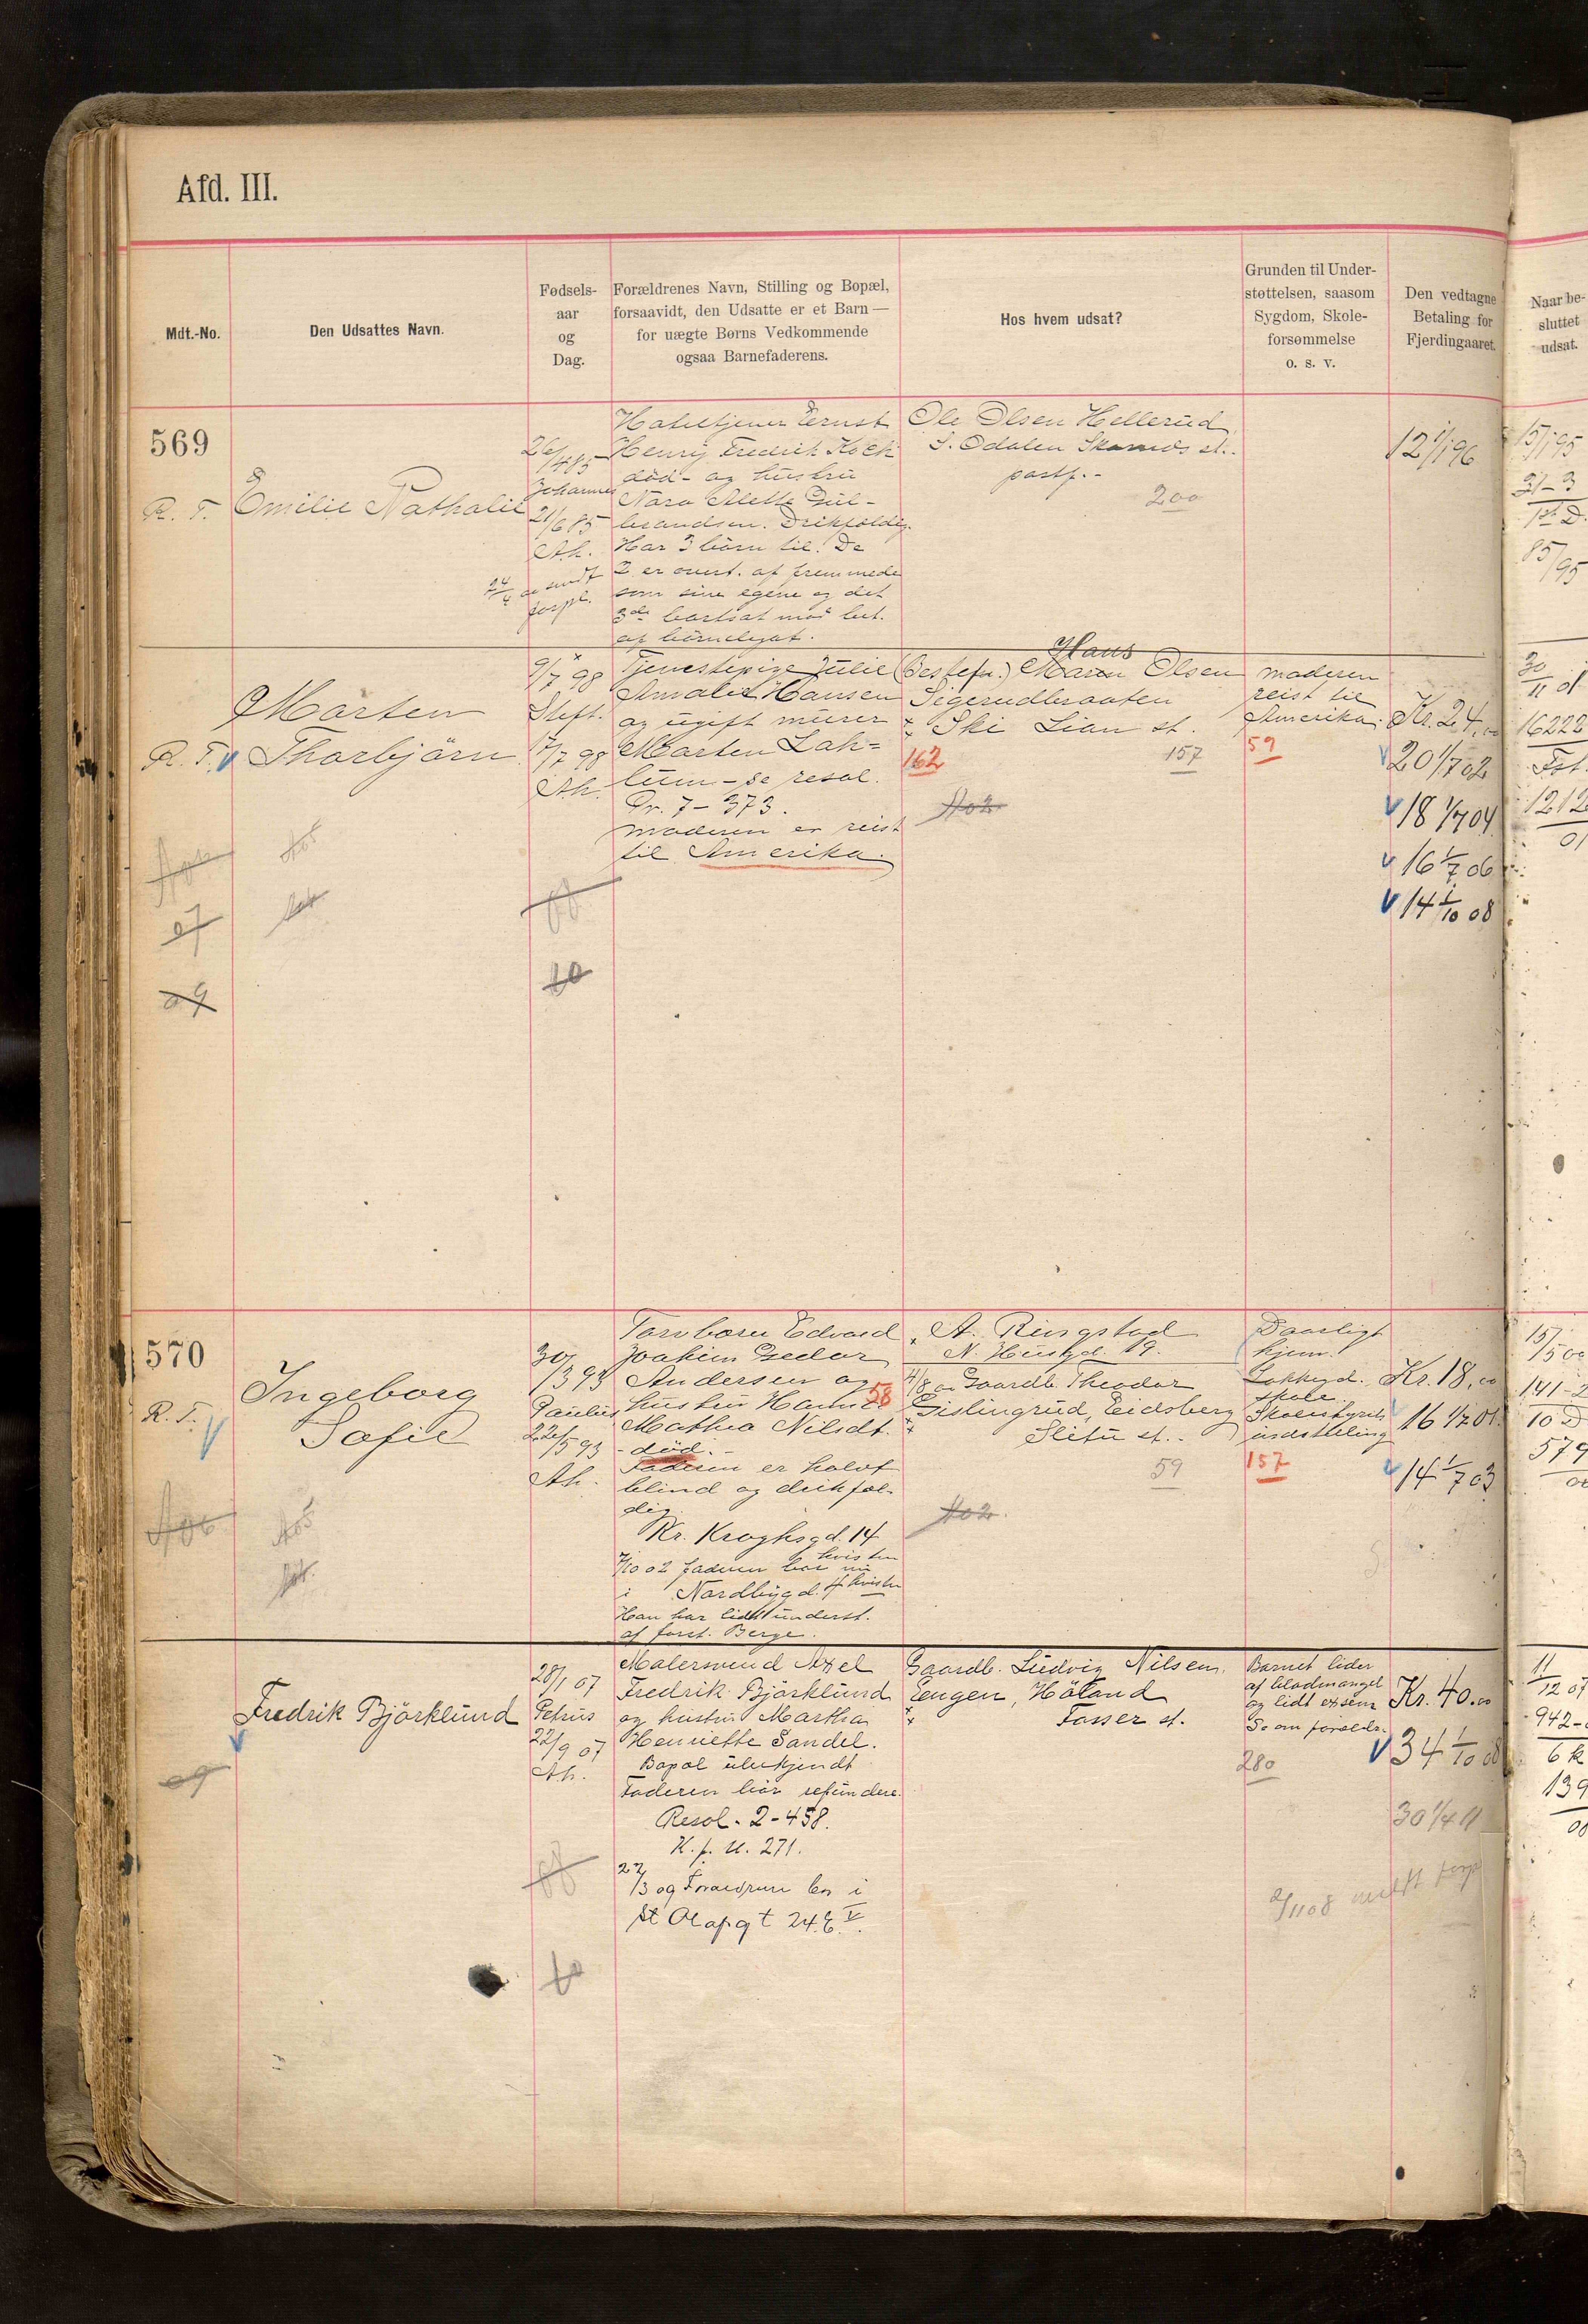 Afd. III.
Mdt.-No.
Den Udsattes Navn.
Fødsels-
aar
og
Dag.
Forældrenes Navn, Stilling og Bopæl,
forsaavidt, den Udsatte er et Barn —
for uægte Børns Vedkommende
ogsaa Barnefaderens.
Hos hvem udsat?
Grunden til Under-
støttelsen, saasom
Sygdom, Skole-
forsømmelse
o. s. v.
Den vedtagne
Betaling for
Fjerdingaaret.
Naar be-
sluttet
udsat.
569
R. T.
Emilie Nathalie
26/4 85
Johannes
21/6 85
Ak.
forpl.
Hoteltjener Ernst
Henrij Fredrik Koch
död - og hustru
Nora Alette Gul-
brandsen. Drikfældig.
Har 3 börn til. De
2 er overt. af fremmede
som sine egene og det
3de bortsat mod bet.
af börnelegat.
Ole Olsen Hellerud
S. Odalen Skarnes st.
postf. -
200
12 1/1 96
15/1 95
21-3
85/95
R. T.
Marten
Thorbjörn
9/7 98
Steft.
17/7 98
Ak.
Tjenestepige Julie
Amalie Hansen
og ugift murer
Marten Lak-
lum - se resol.
Pr. 7 - 373.
moderen er reist
til Amerika.
Hans
(Bestefa.) Maren Olsen
Sigerudbraaten
Ski Lian st.
162
157
moderen
reist til
Amerika.
59
Kr. 24,00
20 1/7 02
18 1/7 04
16 1/7 06
14 1/10 08
30/11 01
16222
1212
01
07
09
10
570
R. T.
Ingeborg
Sofie
30/3 93
Paulus
22/5 93
Ak.
Torvbærer Edvard
Joakim Gedor
Andersen og
hustru Hanna 58
Mathea Nilsdt.
- död. -
Faderen er halvt
blind og drikfæl-
dig.
Kr. Kroghsgd. 14
kvisten
7/10 02 faderen bor nu
i Nordbygd. 4 kvisten
Han har lidt underst.
af forst. Berge.
A. Ringstad
N. Husgd. 19.
Gaardb. Theodor
Gislingrud, Eidsberg
Slitu st.
59
Daarligt
hjem.
Lakkegd.
skole
Skolestyrets
indstilling
157
Kr. 18,00
16 1/7 01
14 1/7 03
15/5 00
141-2
10 D
579
00
Fredrik Björklund
28/1 07
Petrus
22/9 07
Ak.
Malersvend Axel
Fredrik Björklund
og hustru Martha
Henriette Sandel.
Bopæl ubekjendt
Faderen bör refundere.
Resol. 2 - 458.
K. p. U. 271.
22/3 09 Forældrene bor i
St Olafs gt 24. V.
Gaardb. Ludvig Nilsen,
Engen, Höland
Fosser st.
Barnet lider
af blodmangel
og lidt exsem
Se om foreldr.
280
Kr. 40.00
34 1/10 08
30 1/4 11
2/11 08
11/12 07
942-
6 k
139
00
09
10